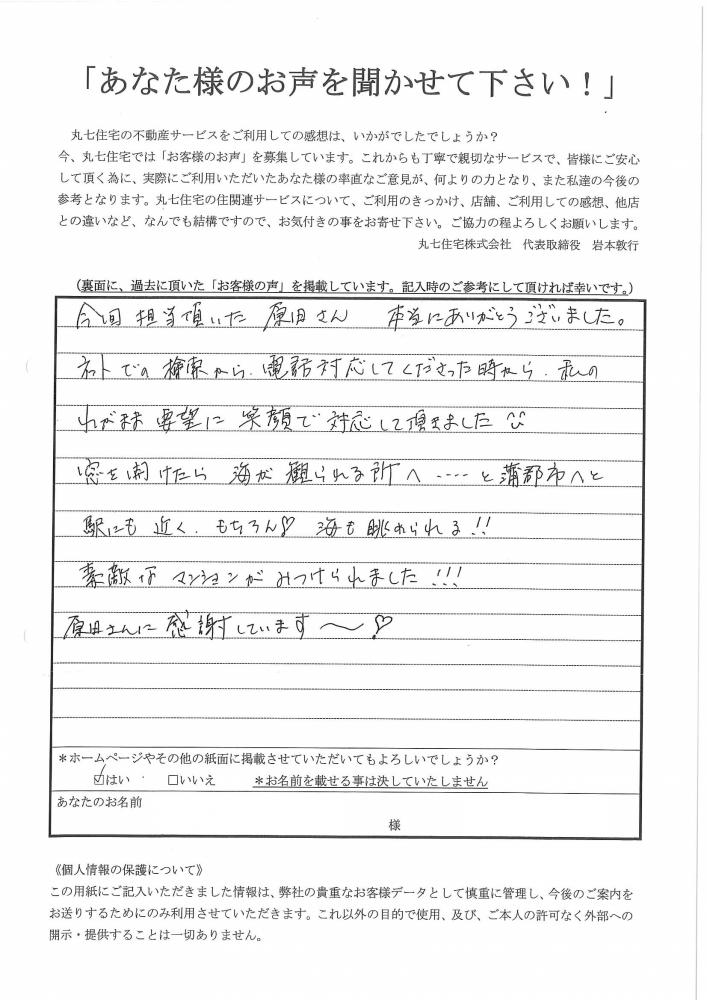 「あなた様のお声を聞かせて下さい！」
丸七住宅の不動産サービスをご利用しての感想は、いかがでしたでしょうか？
今、丸七住宅では「お客様のお声」を募集しています。これからも丁寧で親切なサービスで、皆様にご安心
して頂く為に、実際にご利用いただいたあなた様の率直なご意見が、何よりの力となり、また私達の今後の
参考となります。丸七住宅の住関連サービスについて、ご利用のきっかけ、店舗、ご利用しての感想、他店
との違いなど、なんでも結構ですので、お気付きの事をお寄せ下さい。ご協力の程よろしくお願いします。
丸七住宅株式会社　代表取締役　岩本敦行
（裏面に、過去に頂いた「お客様の声」を掲載しています。記入時のご参考にして頂ければ幸いです。）
今回 担当頂いた 原田さん 本当にありがとうございました。
ネットでの検索から、電話対応してくださった時から、私の
わがまま要望に笑顔で対応して頂きました
窓を開けたら 海が観られる所へ ‥‥と蒲郡市へと
駅にも近く、もちろん♡ 海も眺められる!!
素敵なマンションがみつけられました!!!
原田さんに感謝しています〜♡
＊ホームページやその他の紙面に掲載させていただいてもよろしいでしょうか？
☑はい　□いいえ　＊お名前を載せる事は決していたしません
あなたのお名前
様
《個人情報の保護について》
この用紙にご記入いただきました情報は、弊社の貴重なお客様データとして慎重に管理し、今後のご案内を
お送りするためにのみ利用させていただきます。これ以外の目的で使用、及び、ご本人の許可なく外部への
開示・提供することは一切ありません。